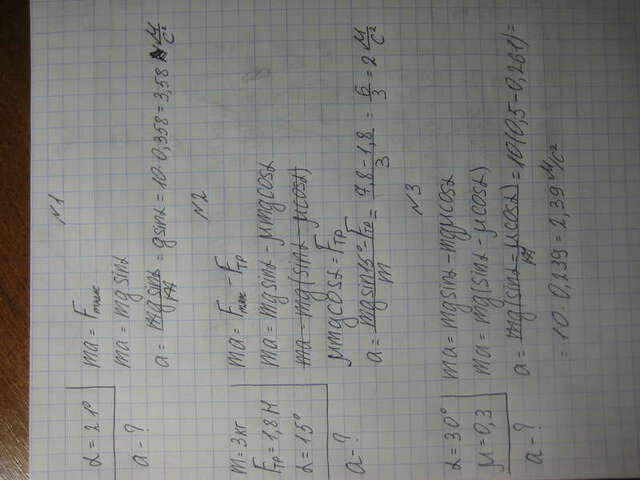 №1
α = 21°
a - ?
ma = Fтяж
ma = mg sinα
a = mg sinα / m = g sinα = 10 · 0,358 = 3,58 м/с²
№2
m = 3 кг
Fтр = 1,8 Н
α = 15°
a - ?
ma = Fтяж - Fтр
ma = mg sinα - μmg cosα
ma = mg(sinα - μcosα)
μmg cosα = Fтр
a = mg sin15° - Fтр / m = 7,8 - 1,8 / 3 = 6/3 = 2 м/с²
№3
α = 30°
μ = 0,3
a - ?
ma = mg sinα - mgμcosα
ma = mg(sinα - μcosα)
a = mg(sinα - μcosα) / m = 10(0,5 - 0,261) =
= 10 · 0,239 = 2,39 м/с²